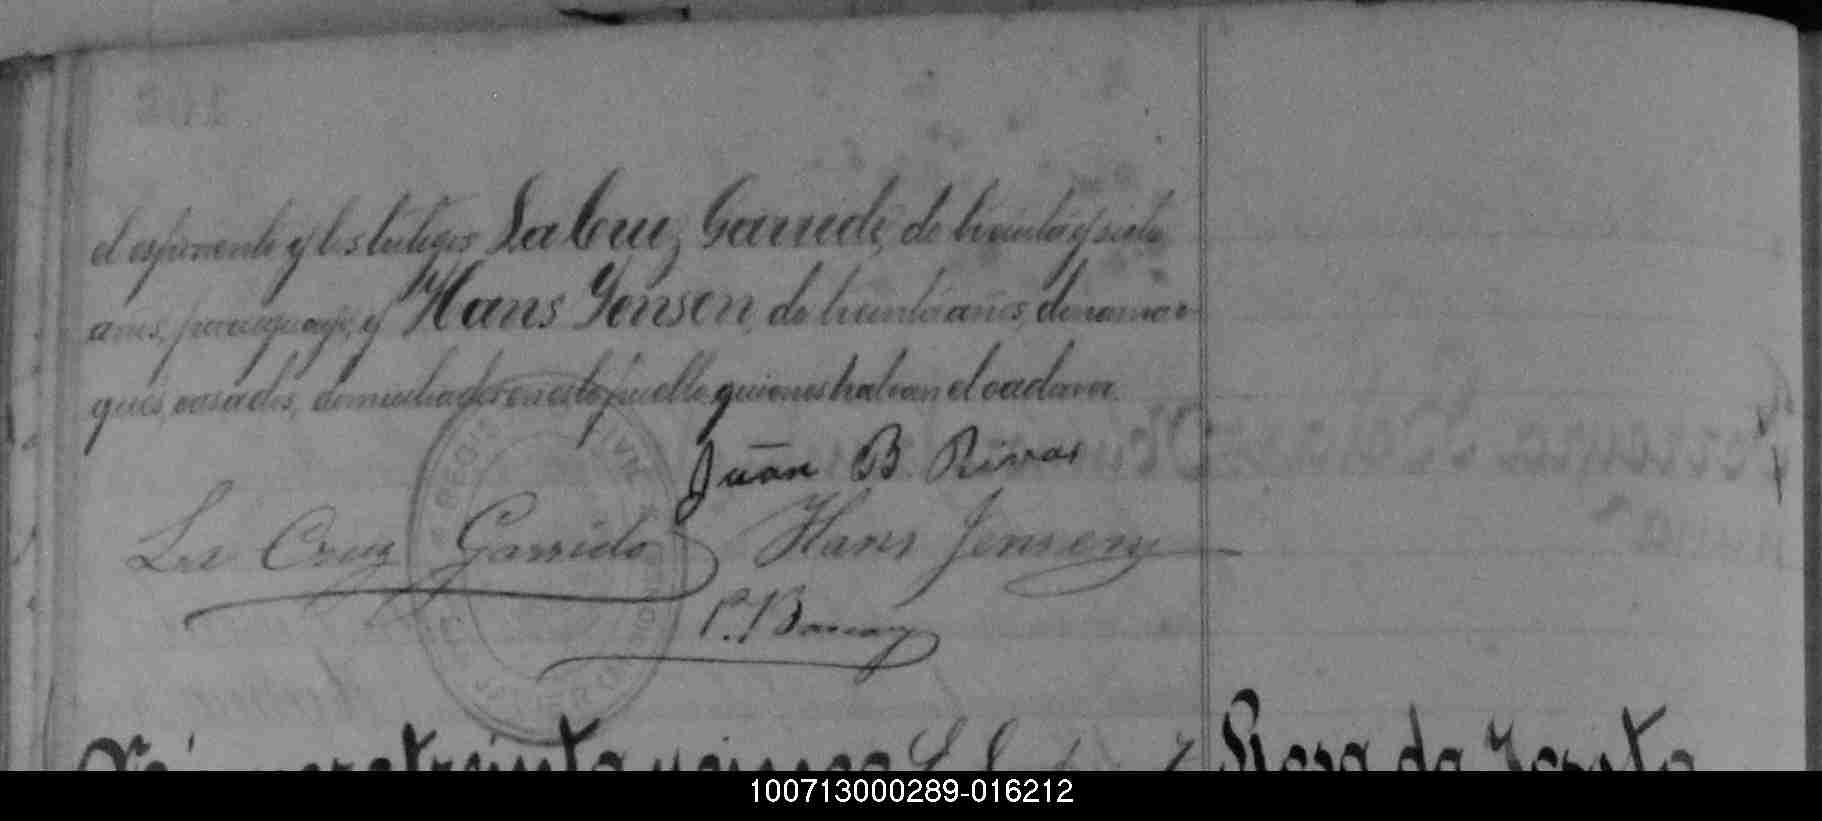 el esponente y los testigos La Cruz Garrido, de treinta y siete
años, paraguayo, y Hans Yensen, de treinta años, dinamar-
qués, casados, domiciliados en este pueblo quienes habian el cadaver.
Juan B Rivas
La Cruz Garrido Hans Jensen
REGIS CIVIL
treinta y cinco Rosa da
100713000289-016212